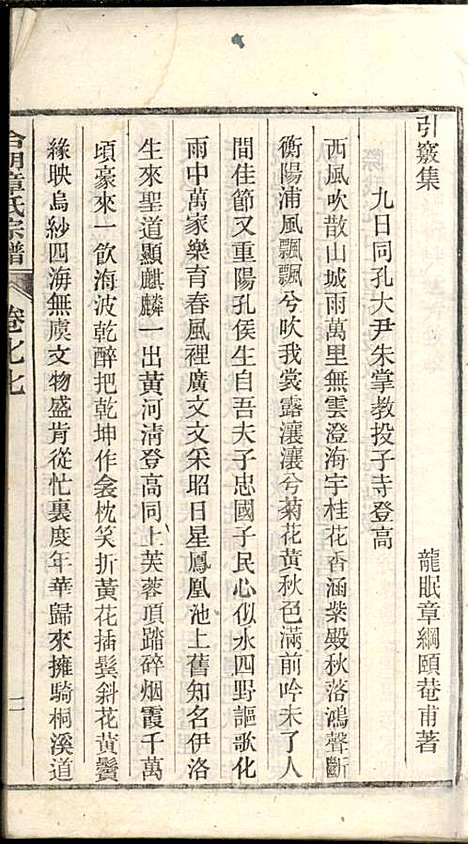 引竅集
龍眠章綱頤菴甫著
九日同孔大尹朱掌教投子寺登高
西風吹散山城雨萬里無雲澄海宇桂花香涵紫殿秋落鴻聲斷
衡陽浦風飄飄兮吹我裳露瀼瀼兮菊花黃秋色滿前吟未了人
間佳節又重陽孔侯生自吾夫子忠國子民心似水四野謳歌化
雨中萬家樂育春風裡廣文文采昭日星鳳凰池上舊知名伊洛
生來聖道顯麒麟一出黃河清登高同上芙蓉頂踏碎烟霞千萬
頃豪來一飲海波乾醉把乾坤作衾枕笑折黃花插鬓斜花黃鬢
綠映烏紗四海無虞文物盛肯從忙裏度年華歸來擁騎桐溪道
章氏宗譜
卷七七
二